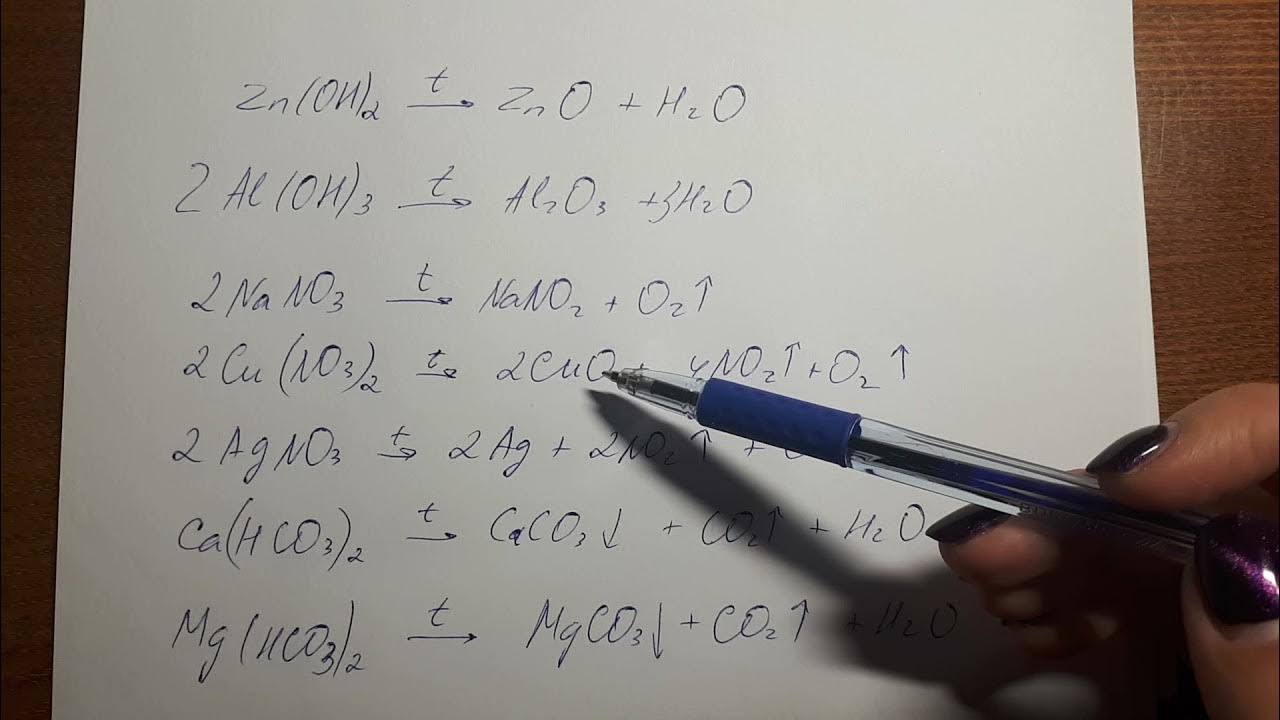 Zn(OH)₂ →ᵗ ZnO + H₂O
2Al(OH)₃ →ᵗ Al₂O₃ + 3H₂O
2NaNO₃ →ᵗ NaNO₂ + O₂↑
2Cu(NO₃)₂ →ᵗ 2CuO + 4NO₂↑ + O₂↑
2AgNO₃ →ᵗ 2Ag + 2NO₂↑ +
Ca(HCO₃)₂ →ᵗ CaCO₃↓ + CO₂↑ + H₂O
Mg(HCO₃)₂ →ᵗ MgCO₃↓ + CO₂↑ + H₂O